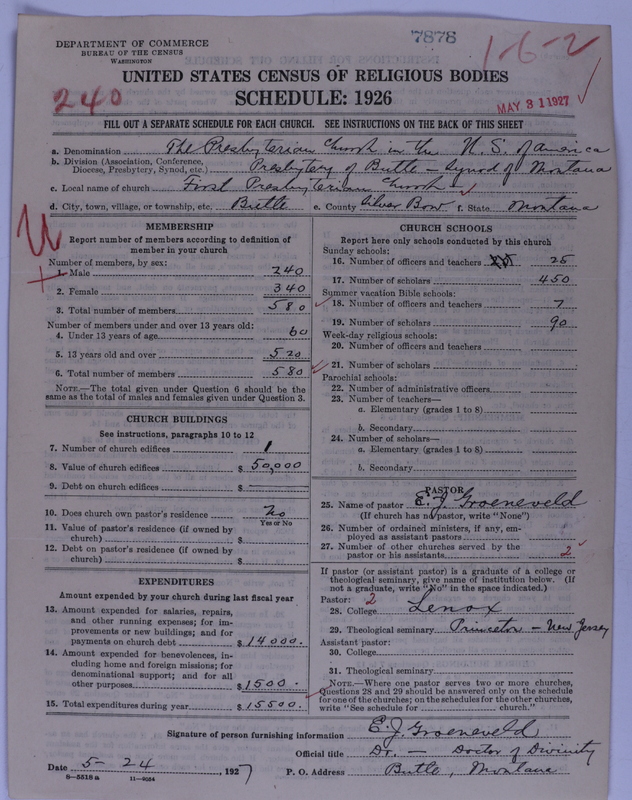 7878
1-6-2
DEPARTMENT OF COMMERCE
BUREAU OF THE CENSUS
WASHINGTON
UNITED STATES CENSUS OF RELIGIOUS BODIES
240
SCHEDULE: 1926
MAY 31 1927
FILL OUT A SEPARATE SCHEDULE FOR EACH CHURCH. SEE INSTRUCTIONS ON THE BACK OF THIS SHEET
a. Denomination The Presbyterian Church in the U.S. of America
b. Division (Association, Conference, Diocese, Presbytery, Synod, etc.) Presbytery of Butte – Synod of Montana
c. Local name of church First Presbyterian Church
d. City, town, village, or township, etc. Butte e. County Silver Bow f. State Montana
MEMBERSHIP
Report number of members according to definition of
member in your church
Number of members, by sex:
1. Male 240
2. Female 340
3. Total number of members 580
Number of members under and over 13 years old:
4. Under 13 years of age 60
5. 13 years old and over 520
6. Total number of members 580
NOTE.—The total given under Question 6 should be the
same as the total of males and females given under Question 3.
CHURCH BUILDINGS
See instructions, paragraphs 10 to 12
7. Number of church edifices 1
8. Value of church edifices $ 50,000
9. Debt on church edifices $
10. Does church own pastor's residence No
Yes or No
11. Value of pastor's residence (if owned by
church) $
12. Debt on pastor's residence (if owned by
church) $
EXPENDITURES
Amount expended by your church during last fiscal year
13. Amount expended for salaries, repairs,
and other running expenses; for im-
provements or new buildings; and for
payments on church debt $ 14000.
14. Amount expended for benevolences, in-
cluding home and foreign missions; for
denominational support; and for all
other purposes $ 1500.
15. Total expenditures during year $ 15500.
CHURCH SCHOOLS
Report here only schools conducted by this church
Sunday schools:
16. Number of officers and teachers 25
17. Number of scholars 450
Summer vacation Bible schools:
18. Number of officers and teachers 7
19. Number of scholars 90
Week-day religious schools:
20. Number of officers and teachers
21. Number of scholars
Parochial schools:
22. Number of administrative officers
23. Number of teachers—
a. Elementary (grades 1 to 8)
b. Secondary
24. Number of scholars—
a. Elementary (grades 1 to 8)
b. Secondary
PASTOR
25. Name of pastor E. J. Groeneveld
(If church has no pastor, write "None")
26. Number of ordained ministers, if any, em-
ployed as assistant pastors
27. Number of other churches served by the
pastor or his assistants 2
If pastor (or assistant pastor) is a graduate of a college or
theological seminary, give name of institution below. (If
not a graduate, write "No" in the space indicated.)
Pastor: 2
28. College Lenox
29. Theological seminary Princeton – New Jersey
Assistant pastor:
30. College
31. Theological seminary
NOTE.—Where one pastor serves two or more churches,
Questions 28 and 29 should be answered only on the schedule
for one of the churches; on the schedules for the other churches,
write "See schedule for church."
Signature of person furnishing information E. J. Groeneveld
Official title Dr. – Doctor of Divinity
Date 5-24, 1927 P. O. Address Butte, Montana
8—5518 a 11—9034